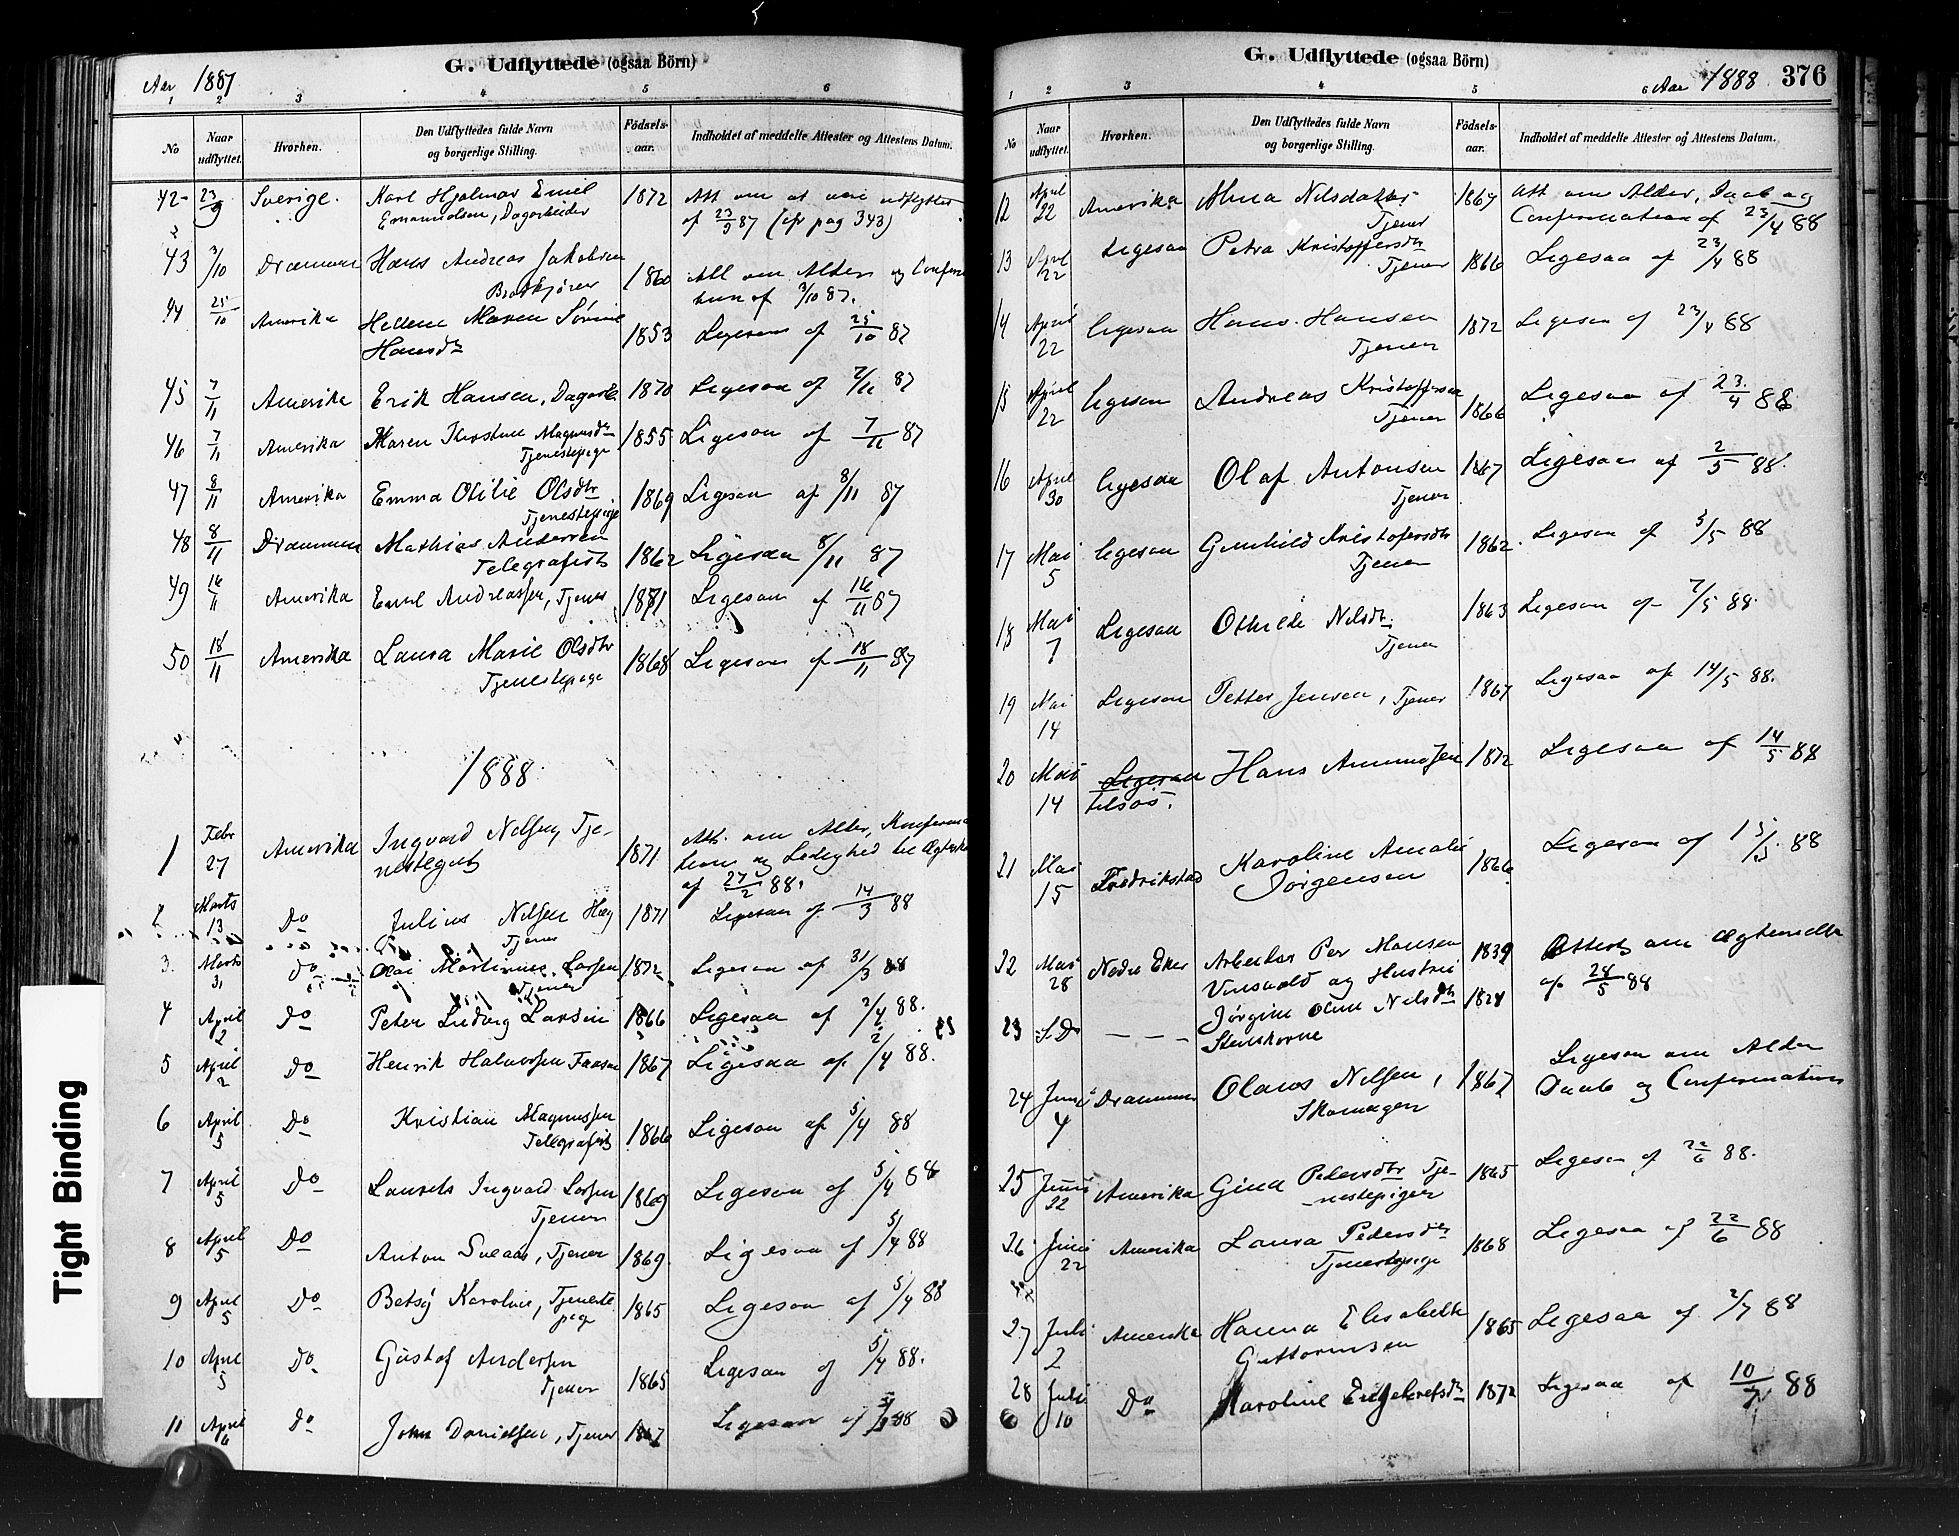 G. Udflyttede (ogsaa Börn)
Aar 1887
1 2 3 4 5 6
No
Naar udflyttet.
Hvorhen.
Den Udflyttedes fulde Navn og borgerlige Stilling.
Fødsels-aar.
Indholdet af meddelte Attester og Attestens Datum.
42 23/9 Sverige. Karl Hjalmar Emil 1872 Att om at være udflyttet
Emanuelsen, Dagarbeider af 23/9 87 (cfr pag 343)
43 3/10 Drammen Hans Andreas Jakobsen 1860 Att om Alder og Confirma
tion af 3/10 87.
44 25/10 Amerika Hellene Maren Sørine 1853 Ligesaa af 25/10 87
Hansdtr
45 7/11 Amerika Erik Hansen, Dagarb 1870 Ligesaa af 7/11 87
46 7/11 Amerika Maren Kirstine Magnusdtr 1855 Ligesaa af 7/11 87
Tjenestepige
47 8/11 Amerika Emma Otilie Olsdtr 1869 Ligesaa af 8/11 87
Tjenestepige
48 8/11 Drammen Mathias Andersen 1862 Ligesaa 8/11 87
Telegrafist
49 16/11 Amerika Emil Andreassen, Tjener 1871 Ligesaa af 16/11 87
50 18/11 Amerika Laura Marie Olsdtr 1868 Ligesaa af 18/11 87
Tjenestepige
1888
1 Febr 27 Amerika Ingvard Nelsen, Tje- 1871 Att. om Alder, Konfirma
nestegut tion og Ledighed til Ægtesk
af 27/2 88.
2 Marts 13 Do Julius Nelsen Hæg 1871 Ligesaa af 14/3 88
Tjener
3. Marts 31 Do Olai Martinius Larsen 1872 Ligesaa af 31/3 88
Tjener
4 April 2 Do Peter Ludvig Larsen 1866 Ligesaa af 2/4 88.
5 April 2 Do Henrik Halvorsen 1867 Ligesaa af 2/4 88.
6 April 5 Do Kristian Magnussen 1866 Ligesaa af 5/4 88
Telegrafist
7 April 5 Do Laurits Ingvard Larsen 1869 Ligesaa af 5/4 88
Tjener
8 April 5 Do Anton Sveaas, Tjener 1869. Ligesaa af 5/4 88
9 April 5 Do Betsy Karoline, Tjeneste 1865 Ligesaa af 5/4 88
pige
10 April 5 Do Gustaf Andersen 1865 Ligesaa af 5/4 88.
Tjener
11 April 6 Do John Danielsen, Tjener 1867 Ligesaa af 88
G. Udflyttede (ogsaa Börn)
Aar 1888 376
1 2 3 4 5 6
No
Naar udflyttet.
Hvorhen.
Den Udflyttedes fulde Navn og borgerlige Stilling.
Fødsels-aar.
Indholdet af meddelte Attester og Attestens Datum.
12 April 22 Amerika Alma Nilsdatter 1867 Att om Alder, Daab og
Tjener Confirmation af 23/4 88
13 April 22 Ligesaa Petra Kristoffersdtr 1866 Ligesaa af 23/4 88
Tjener
14 April 22 Ligesaa Hans Hansen 1872 Ligesaa af 23/4 88
Tjener
15 April 22 Ligesaa Andreas Kristoffersen 1866 Ligesaa af 23/4 88
Tjener
16 April 30 Ligesaa Olaf Antonsen 1867 Ligesaa af 2/5 88.
Tjener
17 Mai 5 Ligesaa Gunhild Kristofersdtr 1862. Ligesaa af 5/5 88
Tjener
18 Mai 7 Ligesaa Othilde Nilsdtr 1863 Ligesaa af 7/5 88.
Tjener
19 Mai 14 Ligesaa Petter Jensen, Tjener 1867 Ligesaa af 14/5 88.
20 Mai 14 Ligesaa Hans Ammonsen 1872 Ligesaa af 14/5 88
tilsøs.
21 Mai 15 Fredrikstad Karoline Amalie 1866 Ligesaa af 15/5 88
Jörgensen
22 Mai 28 Nedre Eker Arbeider Per Monsen 1839 Attest om Ægteskab
og Hustru af 28/5 88
23 S.D. — — — Jörgine Oline Nilsdtr 1828
24 Juni 4 Drammen Olaus Nilsen, 1867 Ligesaa om Alder
Skomager Daab og Confirmation
25 Juni 22 Amerika Gina Petersdtr Tje- 1865 Ligesaa af 22/6 88.
nestepiger
26 Juni 22 Amerika Laura Pedersdtr 1868 Ligesaa af 22/6 88
Tjenestepige
27 Juli 2 Amerika Hanna Elisabeth 1865 Ligesaa af 2/7 88
Guttormsen
28 Juli 10 Do Karoline Engebretsdtr 1872 Ligesaa af 10/7 88
Tight Binding